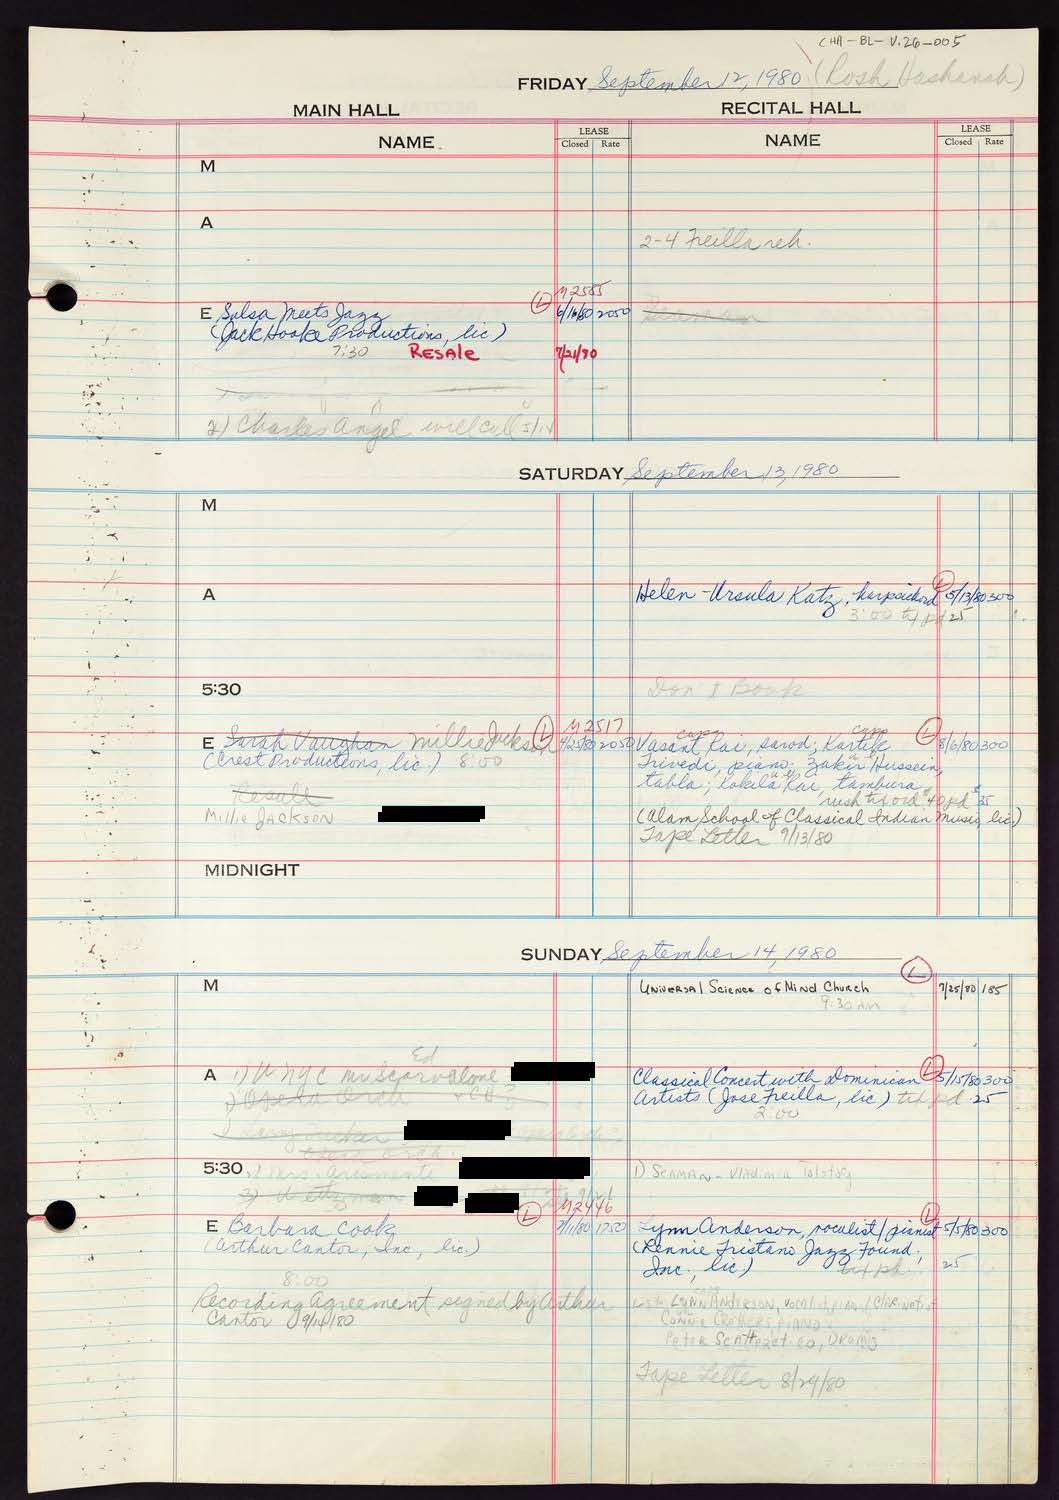 CHA-BL-V.26-005
FRIDAY September 12, 1980 (Rosh Hashanah)
MAIN HALL
RECITAL HALL
NAME
LEASE
Closed Rate
NAME
LEASE
Closed Rate
M
A
2-4 Freilla reh.
L M2585
E Salsa Meets Jazz 6/16/80 2050
(Jack Hooke Productions, lic)
7:30 RESALE 7/21/80
2) Charles Angel will call 5/14
SATURDAY September 13, 1980
M
A
Helen-Ursula Katz, harpsichord L 5/13/80 300
3:00 pd 25
5:30
Don't Book
E Sarah Vaughan Millie Jackson L M2517 4/25/80 2050
(Crest Productions, lic.) 8:00
Resale
Millie JACKSON
Vasant Rai, sarod; Kartik L 8/6/80 300
Trivedi, piano; Zakir Hussein,
tabla; Kokila Rai, tambura
rush tix ord $40 pd $25
(Alam School of Classical Indian Music, lic.)
Tape Letter 9/13/80
MIDNIGHT
SUNDAY September 14, 1980
M
UNIVERSAL SCIENCE OF MIND CHURCH L 7/25/80 185
9:30 AM
A
Ed
1) WNYC Mr Scarvalone
Classical Concert with Dominican L 5/15/80 300
Artists (Jose Freilla, lic) pd 25
2:00
5:30
1) SERMAN - Vladimir Tolstoy
E Barbara Cook L M2446 7/11/80 1750
(Arthur Cantor, Inc, lic.)
8:00
Recording Agreement signed by Arthur
Cantor 9/14/80
Lynn Anderson, vocalist/pianist L 5/5/80 300
(Lennie Tristano Jazz Found,
Inc., lic) 25
LYNN ANDERSON, vocalist, piano/Clarinetist
Connie CROTHERS, PIANO
Peter SCATTERETICO, DRUMS
Tape Letter 8/29/80